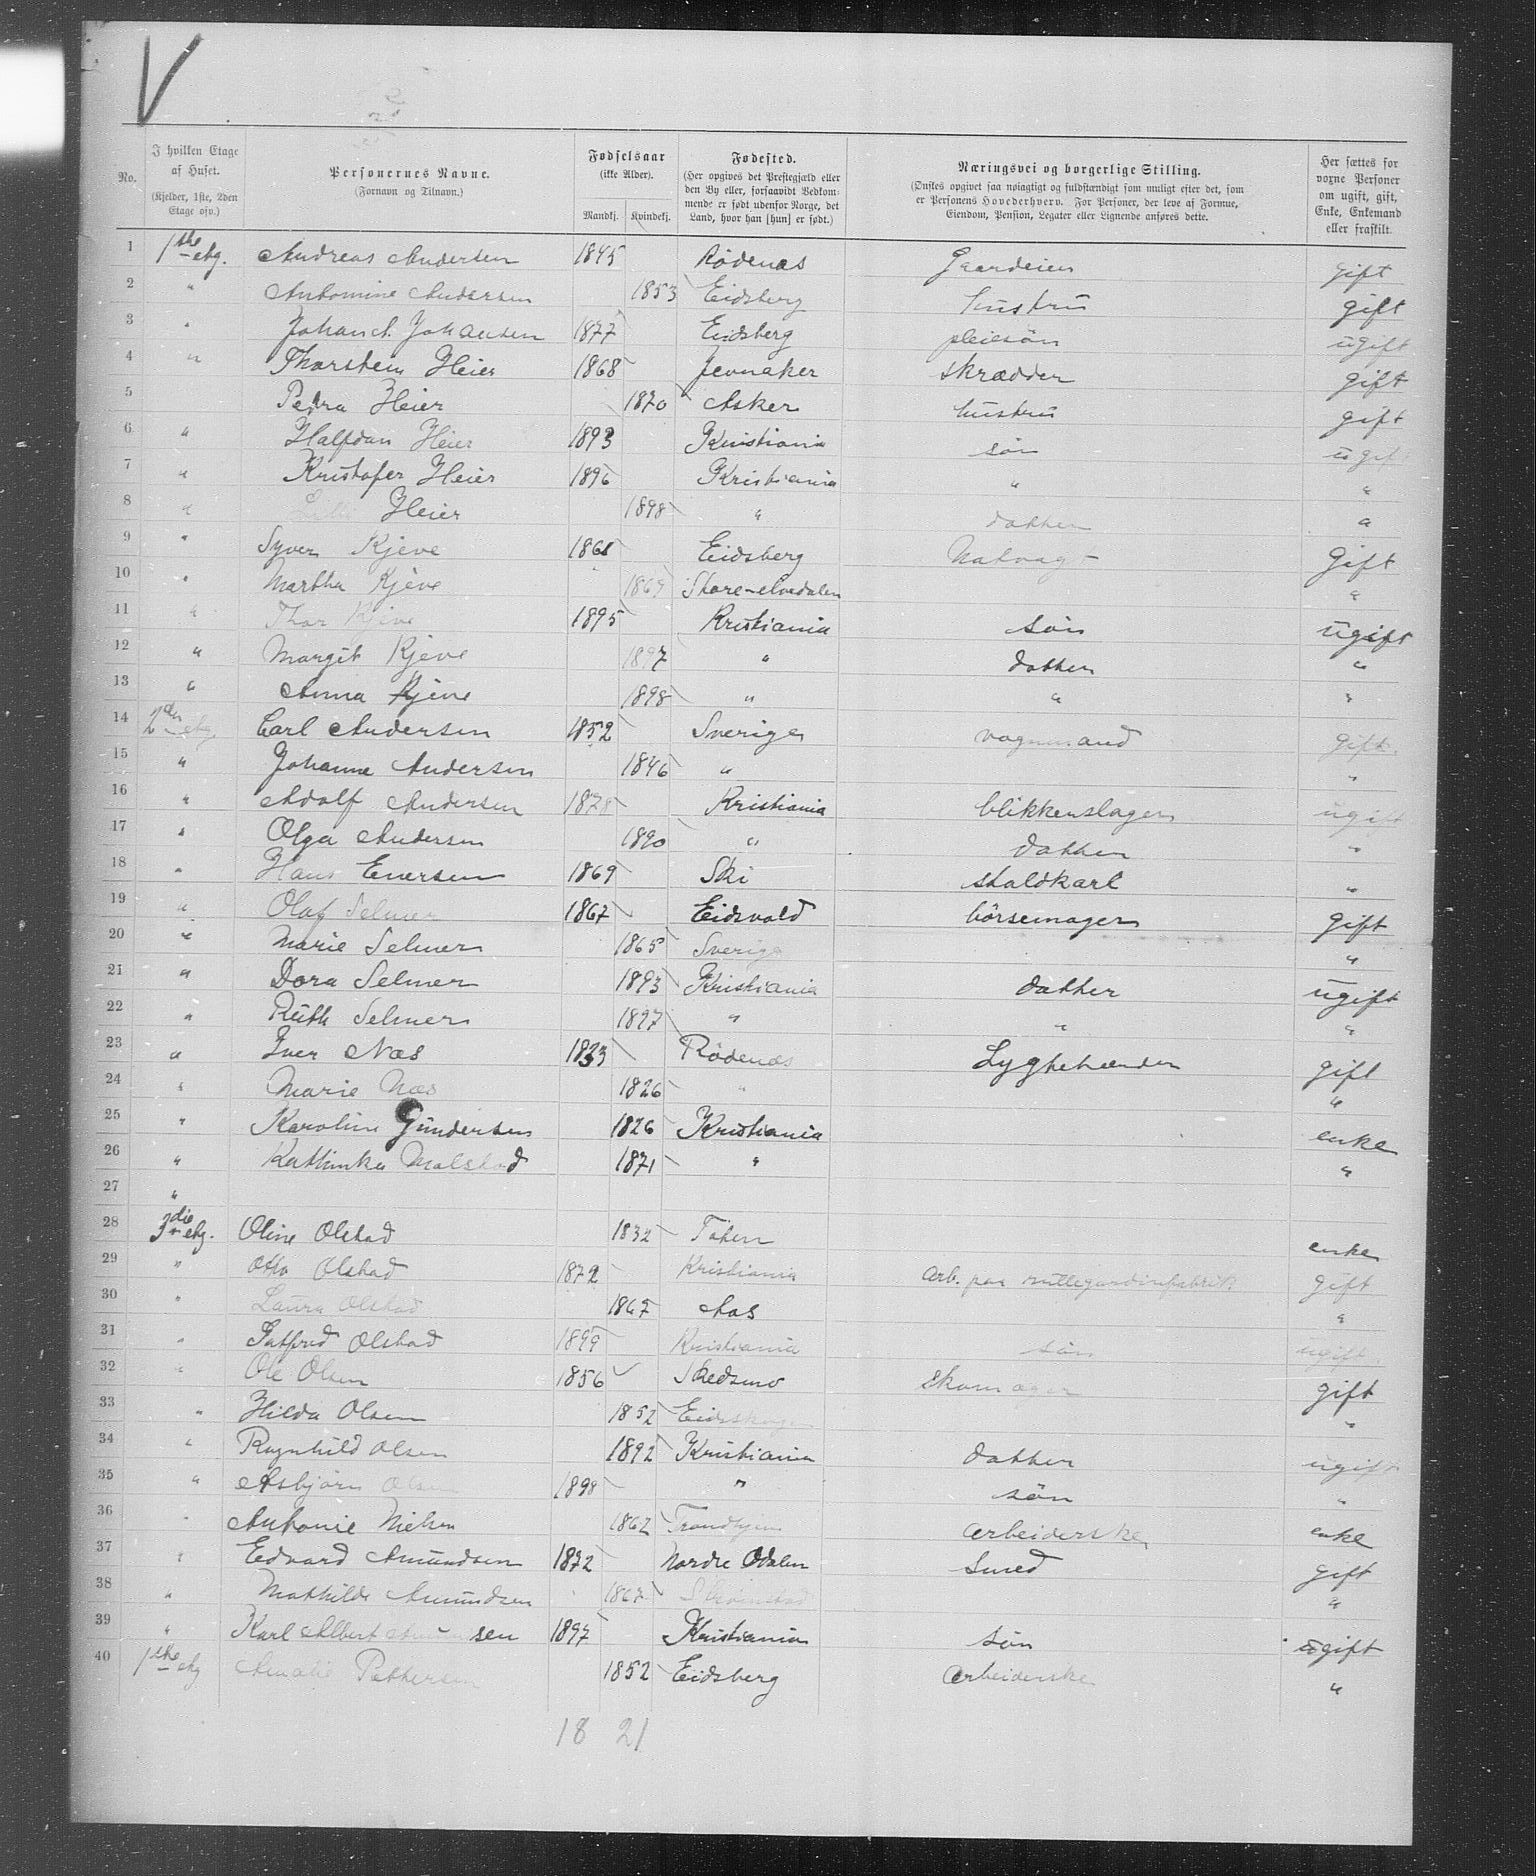 V
No. I hvilken Etage af Huset. (Kjelder, 1ste, 2den Etage osv.) Personernes Navne. (Fornavn og Tilnavn.) Fødselsaar (ikke Alder). Mandkj. Kvindekj. Fødested. (Her opgives det Prestegjæld eller den By eller, forsaavidt Vedkommende er født udenfor Norge, det Land, hvor han [hun] er født.) Næringsvei og borgerlige Stilling. (Ønskes opgivet saa nøiagtigt og fuldstændigt som muligt efter det, som er Personens Hovederhverv. For Personer, der leve af Formue, Eiendom, Pension, Legater eller Lignende anføres dette. Her sættes for voxne Personer om ugift, gift, Enke, Enkemand eller fraskilt.
1 1ste etg. Andreas Andersen 1845 Rödenæs Gaardeier gift
2 " Antomine Andersen 1853 Eidsberg hustru gift
3 " Johan A. Johansen 1877 Eidsberg pleiesön ugift
4 " Tharstein Heier 1868 Jevnaker skrædder gift
5 Petra Heier 1870 Asker hustru gift
6 " Halfdan Heier 1893 Kristiania sön ugift
7 " Kristofer Heier 1896 Kristiania " "
8 " Lilli Heier 1898 " datter "
9 " Syver Kjeve 1861 Eidsberg Natvagt Gift
10 " Martha Kjeve 1869 Store-elvedalen "
11 " Thor Kjeve 1895 Kristiania sön ugift
12 " Margit Kjeve 1897 " datter "
13 " Anna Kjeve 1898 " " "
14 2den etg. Carl Andersen 1852 Sverige vognmand gift
15 " Johanne Andersen 1846 " "
16 " Adolf Andersen 1878 Kristiania blikkenslager ugift
17 " Olga Andersen 1890 " datter "
18 " Hans Enersen 1869 Ski staldkarl "
19 " Olaf Selmer 1867 Eidsvold börsemager gift
20 " Marie Selmer 1865 Sverige "
21 " Dora Selmer 1893 Kristiania datter ugift
22 " Ruth Selmer 1897 " " "
23 " Iver Næs 1833 Rödenæs Lygtetænder gift
24 " Marie Næs 1826 " "
25 " Karoline Gundersen 1826 Kristiania enke
26 " Kathinka Malstad 1871 " "
27 "
28 3die etg. Oline Olstad 1832 Toten enke
29 " Otto Olstad 1872 Kristiania Arb. paa rullegardinfabrik gift
30 " Laura Olstad 1867 Aas "
31 " Olstad 1899 Kristiania sön ugift
32 " Ole Olsen 1856 Skedsmo Skomager gift
33 " Hilda Olsen 1852 Eidsskogen "
34 " Ragnhild Olsen 1892 Kristiania datter ugift
35 " Asbjörn Olsen 1898 " sön "
36 " Antonie Nielsen 1862 Trondhjem arbeiderske enke
37 " Edvard Amundsen 1872 Nordre Odalen Smed gift
38 " Mathilde Amundsen 1867 Strömstad "
39 " Karl Albert Amundsen 1897 Kristiania sön ugift
40 1ste etg Amalie Pettersen 1852 Eidsberg arbeiderske "
18 21